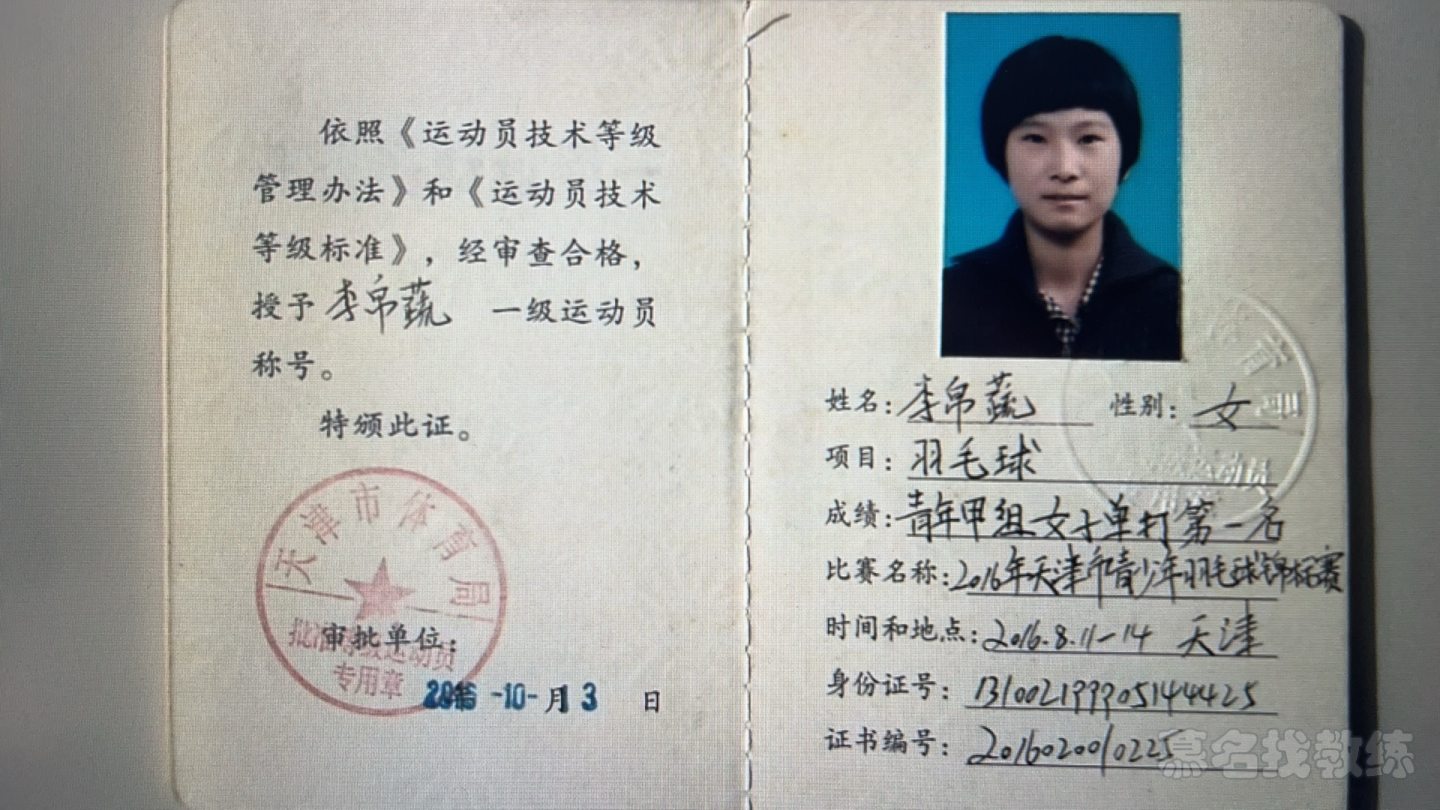 依照《运动员技术等级
管理办法》和《运动员技术
等级标准》，经审查合格，
授予 李帛蔬 一级运动员
称号。
特颁此证。
天津市体育局
审批单位：
批准等级运动员
专用章
2016-10-月13 日
姓名：李帛蔬 性别：女
项目：羽毛球
成绩：青年甲组女子单打第一名
比赛名称：2016年天津市青少年羽毛球锦标赛
时间和地点：2016.8.11-14 天津
身份证号：131002199905144425
证书编号：2016020010225
慕名找教练